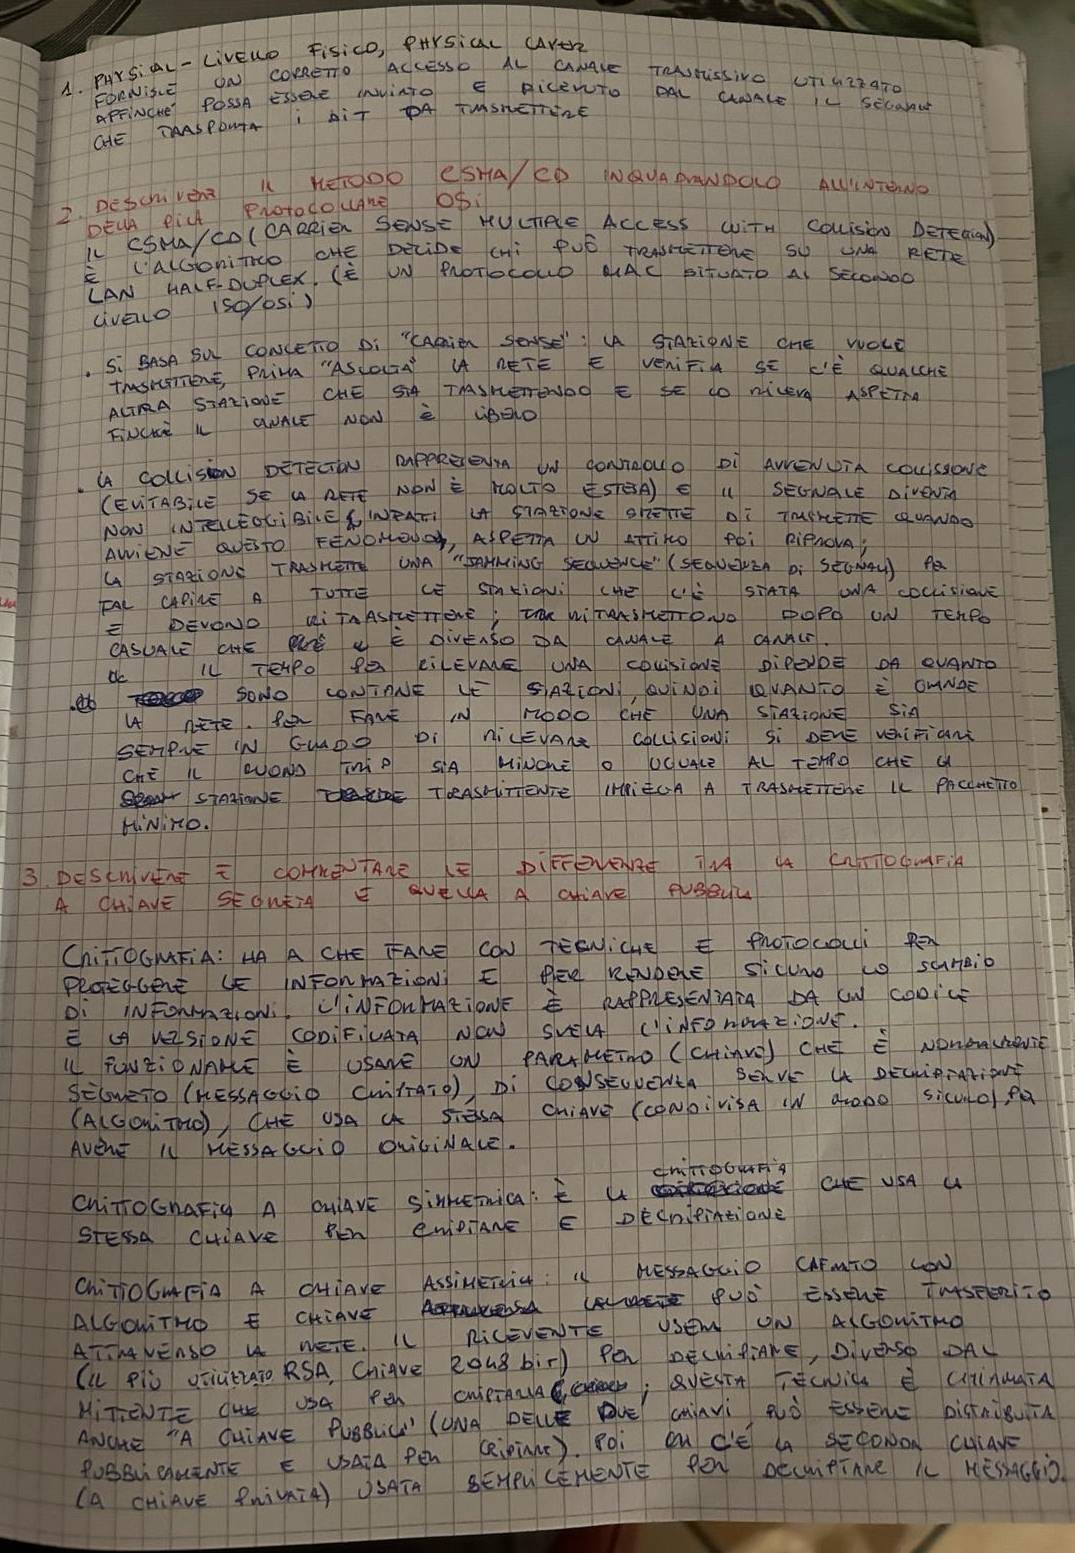 1. PHYSICAL - LIVELLO FISICO, PHYSICAL LAYER
FORNISCE UN CORRETTO ACCESSO AL CANALE TRASMISSIVO UTILIZZATO
AFFINCHÉ POSSA ESSERE INVIATO E RICEVUTO DAL CANALE IL SEGNALE
CHE TRASPORTA I BIT DA TRASMETTERE
2. DESCRIVERE IL METODO CSMA/CD INQUADRANDOLO ALL'INTERNO
DELLA PILA PROTOCOLLARE OSI
IL CSMA/CD (CARRIER SENSE MULTIPLE ACCESS WITH COLLISION DETECTION)
È L'ALGORITMO CHE DECIDE CHI PUÒ TRASMETTERE SU UNA RETE
LAN HALF-DUPLEX. (È UN PROTOCOLLO MAC SITUATO AL SECONDO
LIVELLO ISO/OSI)
. SI BASA SUL CONCETTO DI "CARRIER SENSE": LA STAZIONE CHE VUOLE
TRASMETTERE, PRIMA "ASCOLTA" LA RETE E VERIFICA SE C'È QUALCHE
ALTRA STAZIONE CHE STA TRASMETTENDO E SE LO RILEVA ASPETTA
FINCHÈ IL CANALE NON È LIBERO
. LA COLLISION DETECTION RAPPRESENTA UN CONTROLLO DI AVVENUTA COLLISSIONE
(EVITABILE SE LA RETE NON È MOLTO ESTESA) E IL SEGNALE DIVENTA
NON INTELLEGGIBILE, INFATI LA STAZIONE SMETTE DI TRASMETTE QUANDO
AVVIENE QUESTO FENOMENO, ASPETTA UN ATTIMO POI RIPROVA;
LA STAZIONE TRASMETTE UNA "JAMMING SEQUENCE" (SEQUENZA DI SEGNALI) PER
FAR CAPIRE A TUTTE LE STAZIONI CHE C'È STATA UNA COLLISIONE
E DEVONO RITRASMETTERE; RITRASMETTONO DOPO UN TEMPO
CASUALE CHE È DIVERSO DA CANALE A CANALE.
IL TEMPO PER RILEVARE UNA COLLISIONE DIPENDE DA QUANTO
SONO LONTANE LE STAZIONI, QUINDI QUANTO È GRANDE
LA RETE. PER FARE IN MODO CHE UNA STAZIONE SIA
SEMPRE IN GRADO DI RILEVARE COLLISIONI SI DEVE VERIFICARE
CHE IL ROUND TRIP SIA MINORE O UGUALE AL TEMPO CHE LA
STAZIONE TRASMITTENTE IMPIEGA A TRASMETTERE IL PACCHETTO
MINIMO.
3. DESCRIVERE E COMMENTARE LE DIFFERENZE TRA LA CRITTOGRAFIA
A CHIAVE SEGRETA E QUELLA A CHIAVE PUBBLICA
CRITTOGRAFIA: HA A CHE FARE CON TECNICHE E PROTOCOLLI PER
PROTEGGERE LE INFORMAZIONI E PER RENDERE SICURO LO SCAMBIO
DI INFORMAZIONI. L'INFORMAZIONE È RAPPRESENTATA DA UN CODICE
E LA VERSIONE CODIFICATA NON SVELA L'INFORMAZIONE.
IL FUNZIONAMENTO È USARE UN PARAMETRO (CHIAVE) CHE È NORMALMENTE
SEGRETO (MESSAGGIO CIFRATO), DI CONSEGUENZA SERVE LA DECRIPTAZIONE
(ALGORITMO), CHE USA LA STESSA CHIAVE (CONDIVISA IN MODO SICURO) PER
AVERE IL MESSAGGIO ORIGINALE.
CRITTOGRAFIA A CHIAVE SIMMETRICA: È LA CRITTOGRAFIA CHE USA LA
STESSA CHIAVE PER CRIPTARE E DECRIPTAZIONE
CRITTOGRAFIA A CHIAVE ASSIMETRICA: IL MESSAGGIO CIFRATO CON
ALGORITMO E CHIAVE PUÒ ESSERE TRASFERITO
ATTRAVERSO LA RETE. IL RICEVENTE USERÀ UN ALGORITMO
(IL PIÙ UTILIZZATO RSA, CHIAVE 2048 BIT) PER DECRIPTARE, DIVERSO DAL
MITTENTE CHE USA PER CRIPTARLA; QUESTA TECNICA È CHIAMATA
ANCHE "A CHIAVE PUBBLICA" (UNA DELLE DUE CHIAVI PUÒ ESSERE DISTRIBUITA
PUBBLICAMENTE E USATA PER CRIPTARE). POI C'È LA SECONDA CHIAVE
(LA CHIAVE PRIVATA) USATA SEMPLICEMENTE PER DECRIPTARE IL MESSAGGIO.